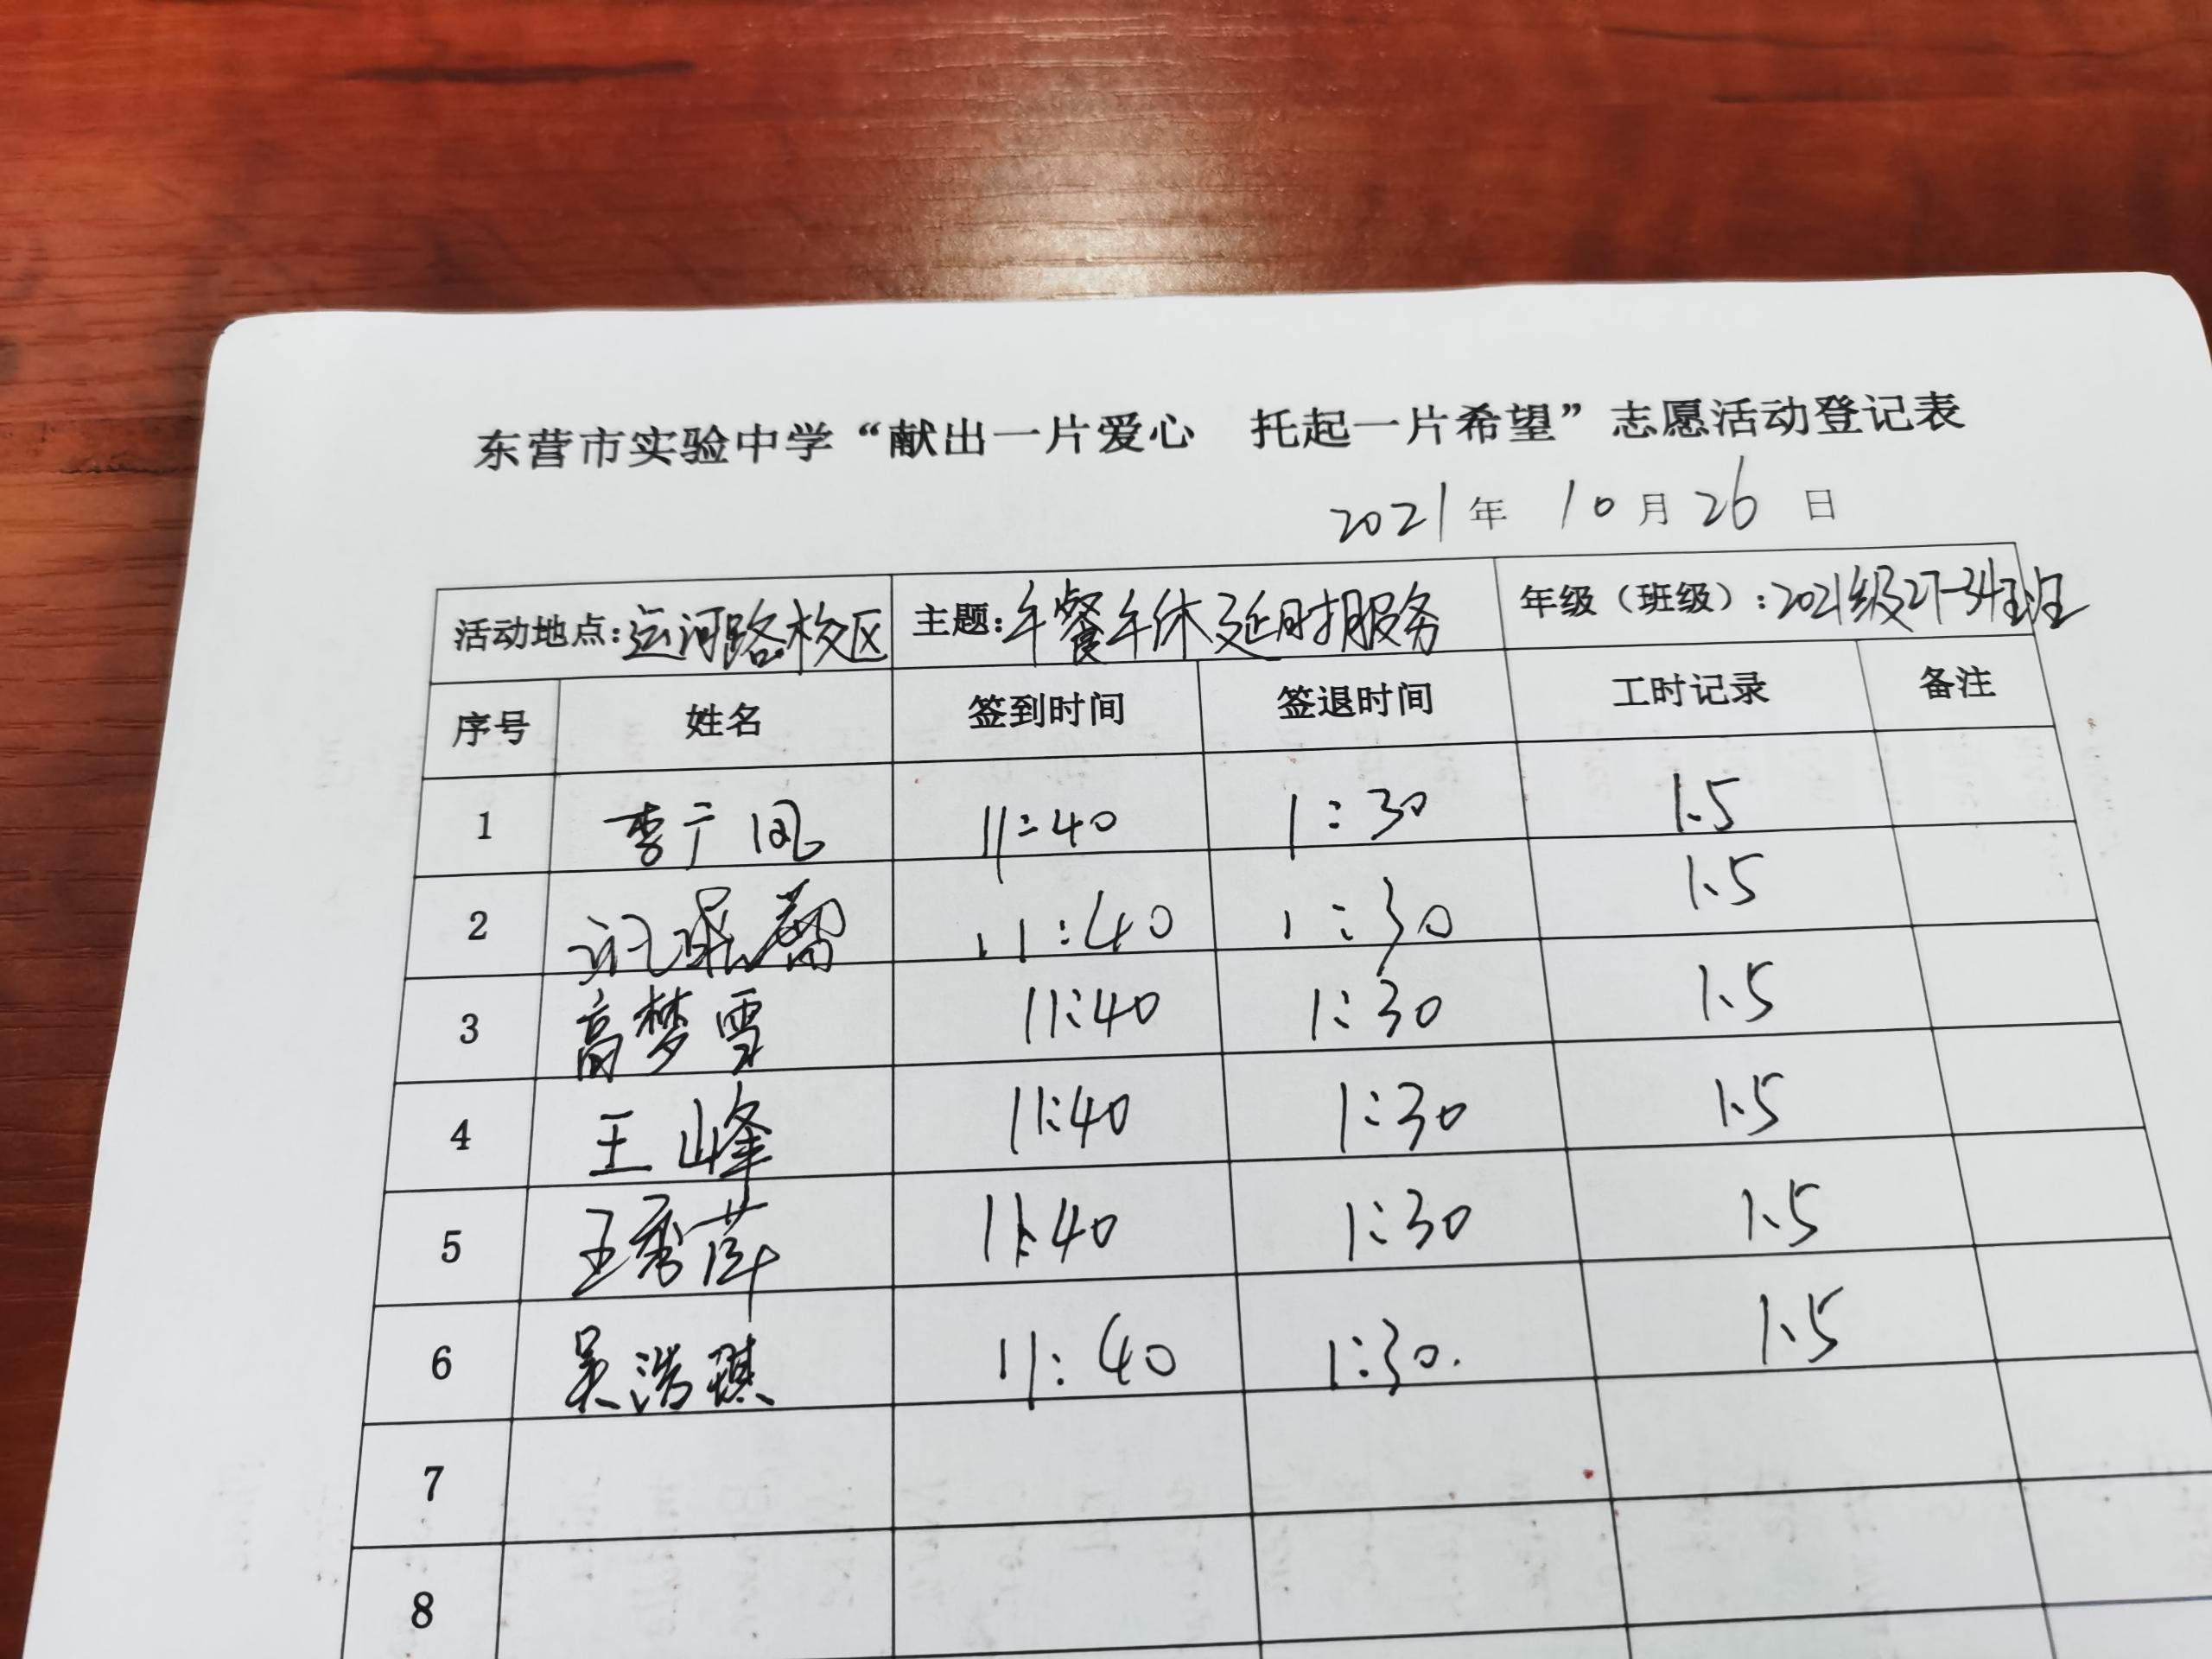 东营市实验中学“献出一片爱心 托起一片希望”志愿活动登记表
2021年 10月26日
活动地点:运河路校区 主题:午餐午休延时服务 年级（班级）:2021级27-34班
序号 姓名 签到时间 签退时间 工时记录 备注
1 李广凤 11:40 1:30 1.5
2 11:40 1:30 1.5
3 高梦雪 11:40 1:30 1.5
4 王峰 11:40 1:30 1.5
5 王秀萍 11:40 1:30 1.5
6 吴浩琪 11:40 1:30. 1.5
7
8